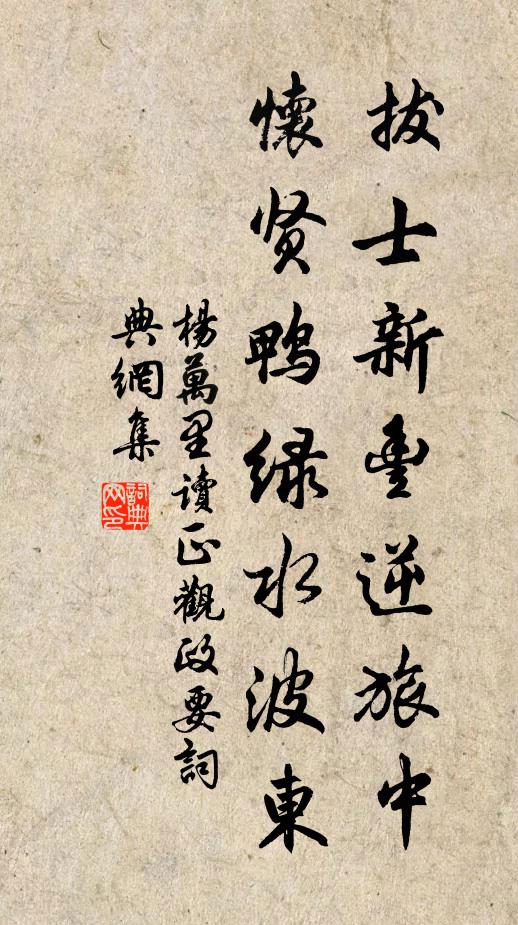 拔士新豊逆旅中
懷贤鴨緑水波東
楊萬里讀正觀政要詞
典網集
詞典
网印